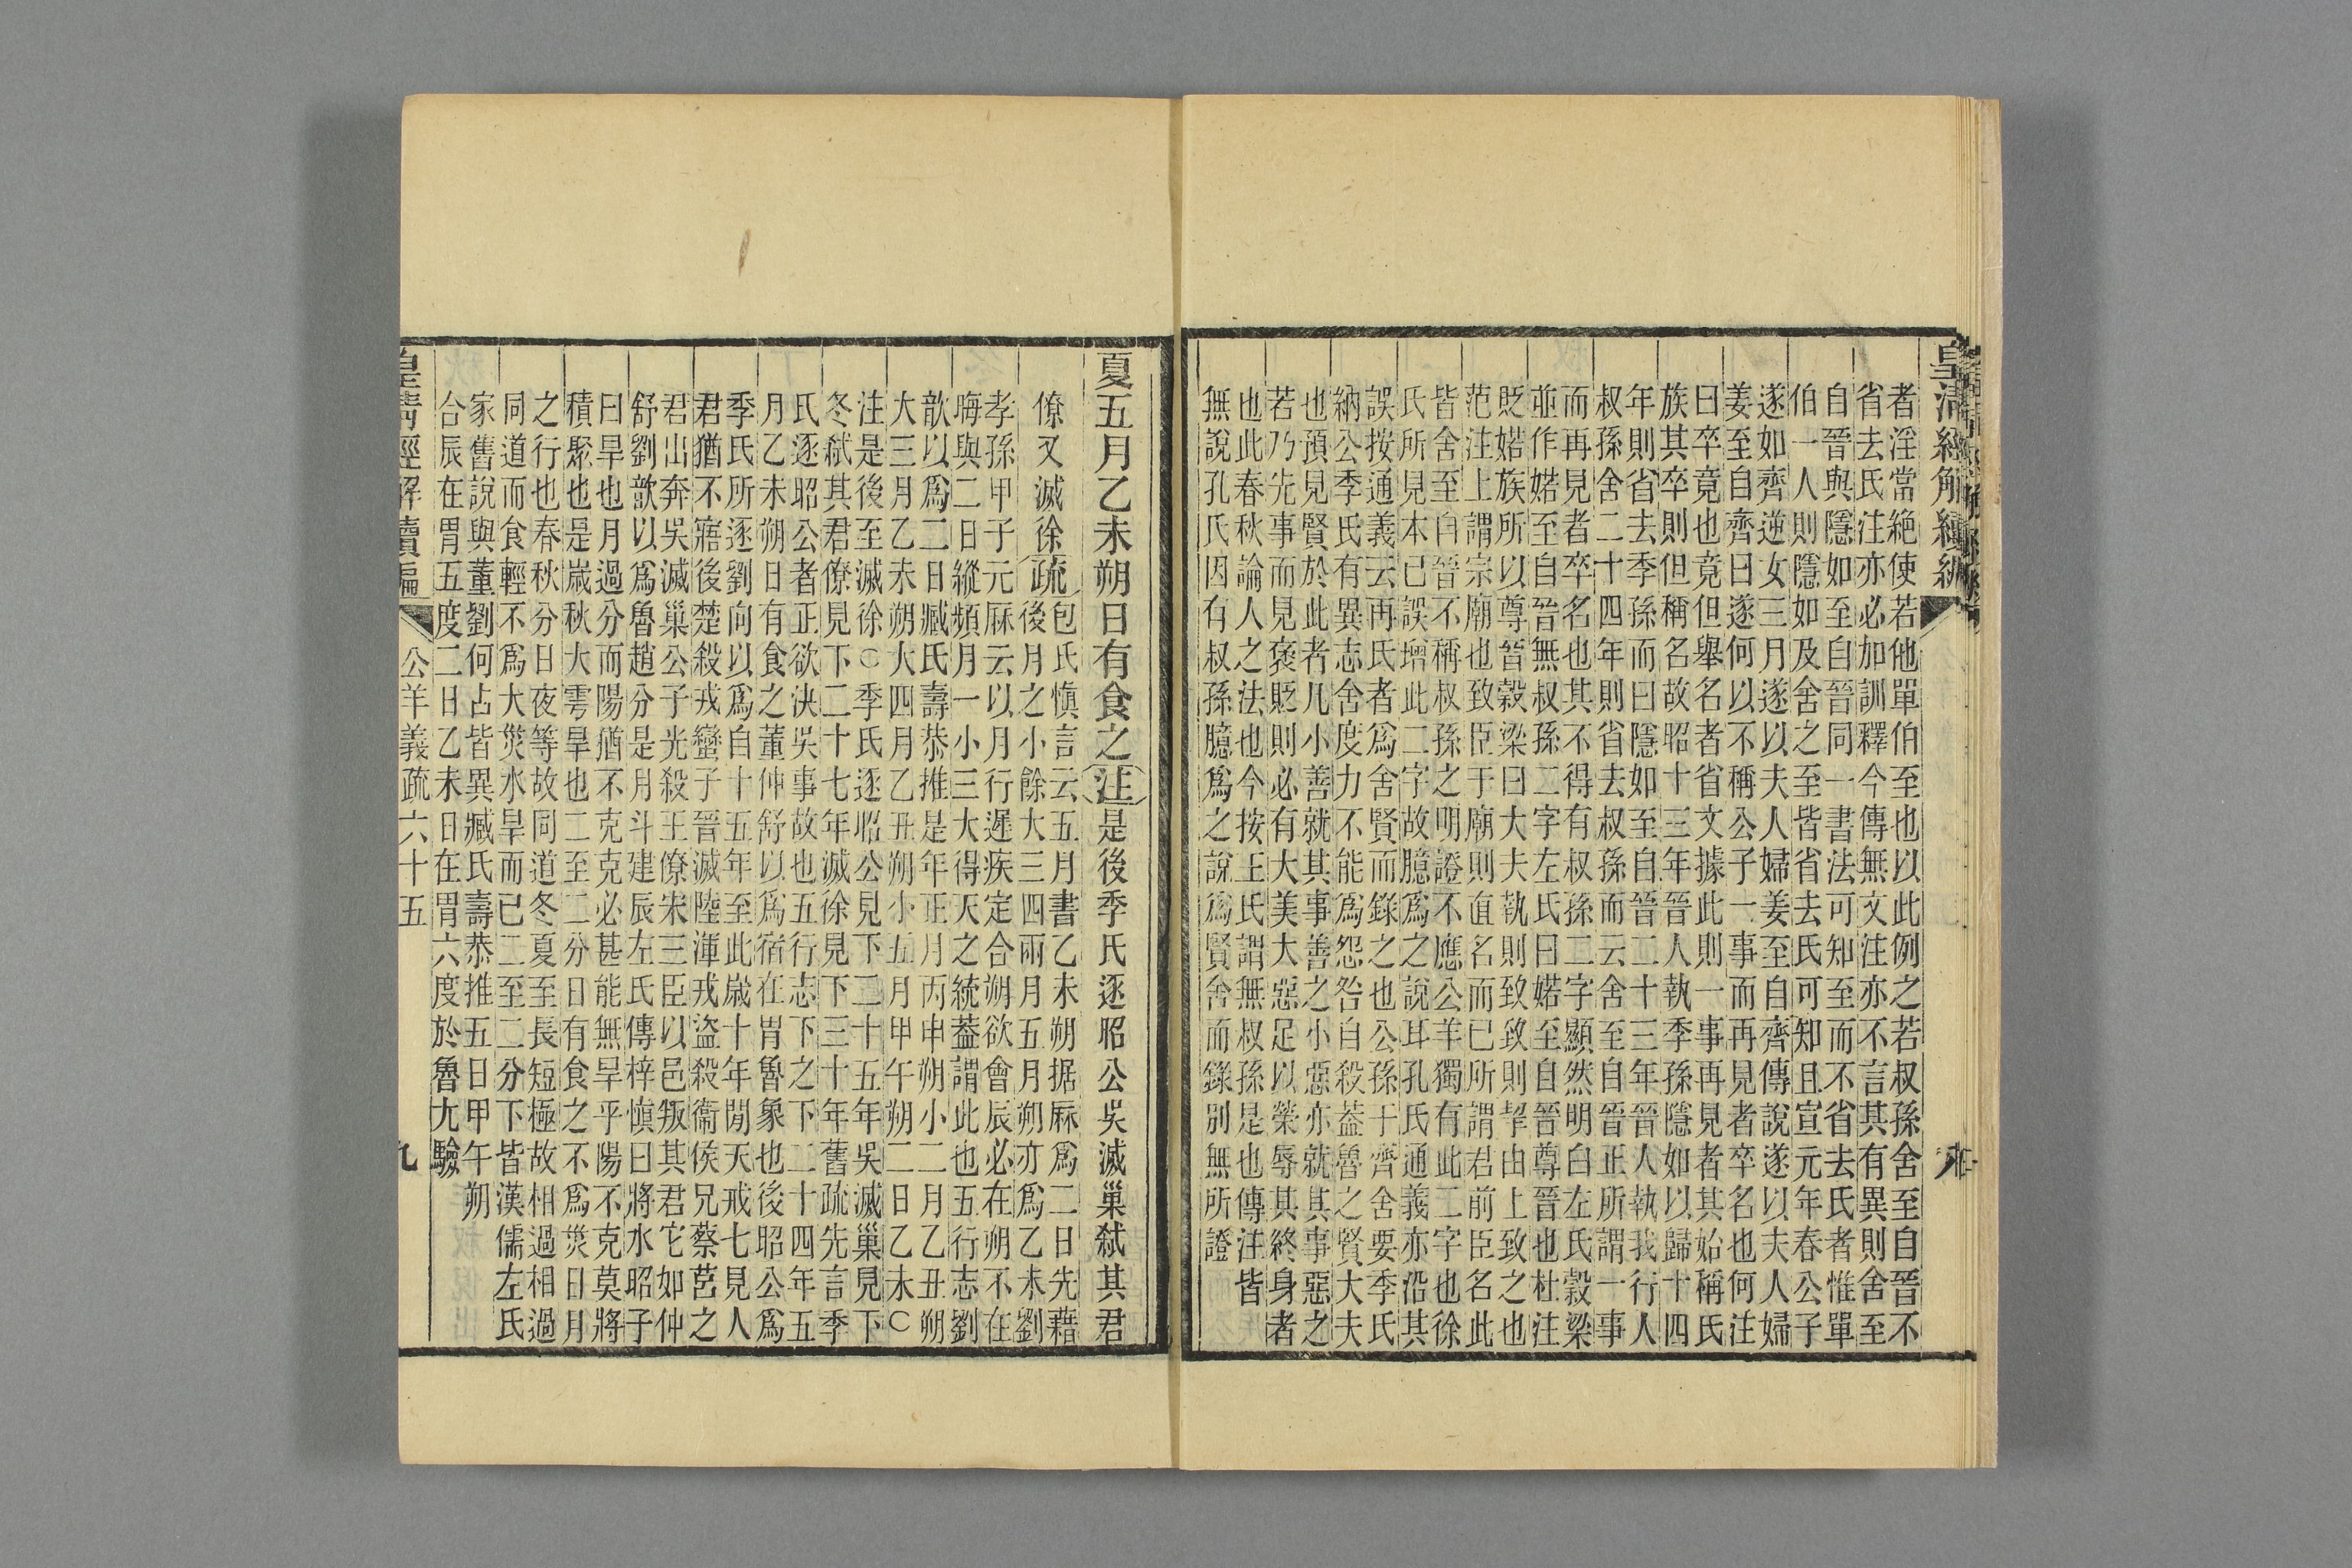 皇清經解續編
者淫當絕使若他單伯至也以此例之若叔孫舍至自晉不
省去氏注亦必加訓釋今傳無文注亦不言其有異則舍至
自晉與隱如至自晉同一書法可知至而不省去氏者惟單
伯一人則隱如及舍之至皆省去氏可知且宣元年春公子
遂如齊逆女三月遂以夫人婦姜至自齊傳說遂以夫人婦
姜至自齊曰遂何以不稱公子一事而再見者卒名也何注
曰卒竟也竟但舉名者省文據此則一事再見者其始稱氏
族其卒則但稱名故昭十三年晉人執季孫隱如以歸十四
年則省去季孫而曰隱如至自晉二十三年晉人執我行人
叔孫舍二十四年則省去叔孫而云舍至自晉正所謂一事
而再見者卒名也其不得有叔孫二字顯然明白左氏穀梁
並作婼至自晉無叔孫二字左氏曰婼至自晉尊晉也杜注
貶婼族所以尊晉穀梁曰大夫執則致致則挈由上致之也
范注上謂宗廟也致臣于廟則直名而已所謂君前臣名此
皆舍至自晉不稱叔孫之明證不應公羊獨有此二字也徐
氏所見本已誤增此二字故臆爲之說耳孔氏通義亦沿其
誤按通義云再氏者爲舍賢而錄之也公孫于齊舍要季氏
納公季氏有異志舍度力不能爲怨咎自殺葢魯之賢大夫
也預見賢於此者凡小善就其事善之小惡亦就其事惡之
若乃先事而見褒貶則必有大美大惡足以榮辱其終身者
也此春秋論人之法也今按王氏謂無叔孫是也傳注皆
無說孔氏因有叔孫臆爲之說爲賢舍而錄別無所證
夏五月乙未朔日有食之注是後季氏逐昭公吳滅巢弒其君
僚又滅徐疏包氏慎言云五月書乙未朔据厤爲二日先藉
後月之小餘大三四兩月五月朔亦爲乙未劉
孝孫甲子元厤云以月行遲疾定合朔欲會辰必在朔不在
晦與二日縱頻月一小三大得天之統葢謂此也五行志劉
歆以爲二日臧氏壽恭推是年正月丙申朔小二月乙丑朔
大三月乙未朔大四月乙丑朔小五月甲午朔二日乙未○
注是後至滅徐○季氏逐昭公見下二十五年吳滅巢見下
冬弒其君僚見下二十七年滅徐見下三十年舊疏先言季
氏逐昭公者正欲決吳事故也五行志下之下二十四年五
月乙未朔日有食之董仲舒以爲宿在胃魯象也後昭公爲
季氏所逐劉向以爲自十五年至此歲十年閒天戒七見人
君猶不寤後楚殺戎蠻子晉滅陸渾戎盜殺衞侯兄蔡莒之
君出奔吳滅巢公子光殺王僚宋三臣以邑叛其君它如仲
舒劉歆以爲魯趙分是月斗建辰左氏傳梓慎曰將水昭子
曰旱也月過分而陽猶不克克必甚能無旱乎陽不克莫將
積聚也是歲秋大雩旱也二至二分日有食之不爲災日月
之行也春秋分日夜等故同道冬夏至長短極故相過相過
同道而食輕不爲大災水旱而已二至二分下皆漢儒左氏
家舊說與董劉何占皆異臧氏壽恭推五日甲午朔
合辰在胃五度二日乙未日在胃六度於魯尤驗
皇清經解續編
公羊義疏六十五
九